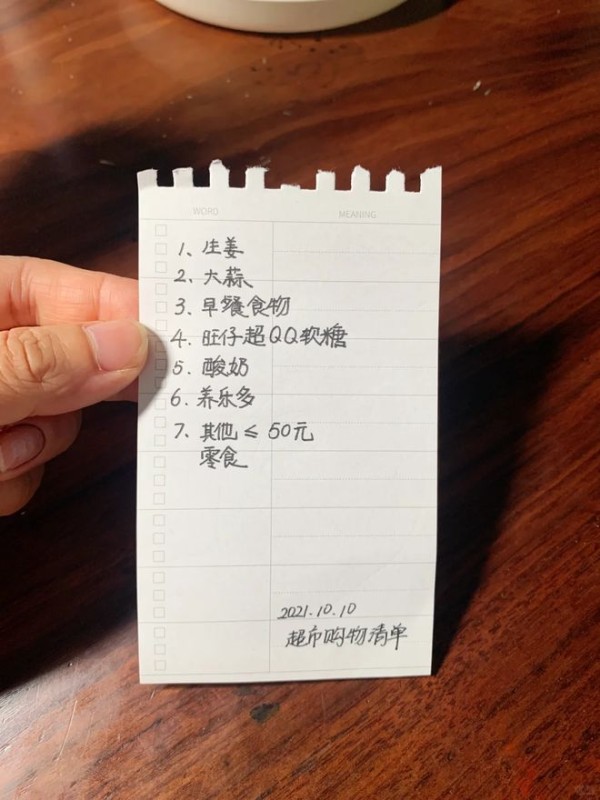 WORD MEANING
1、生姜
2、大蒜
3、早餐食物
4、旺仔超QQ软糖
5、酸奶
6、养乐多
7、其他 ≤ 50元
零食
2021.10.10
超市购物清单